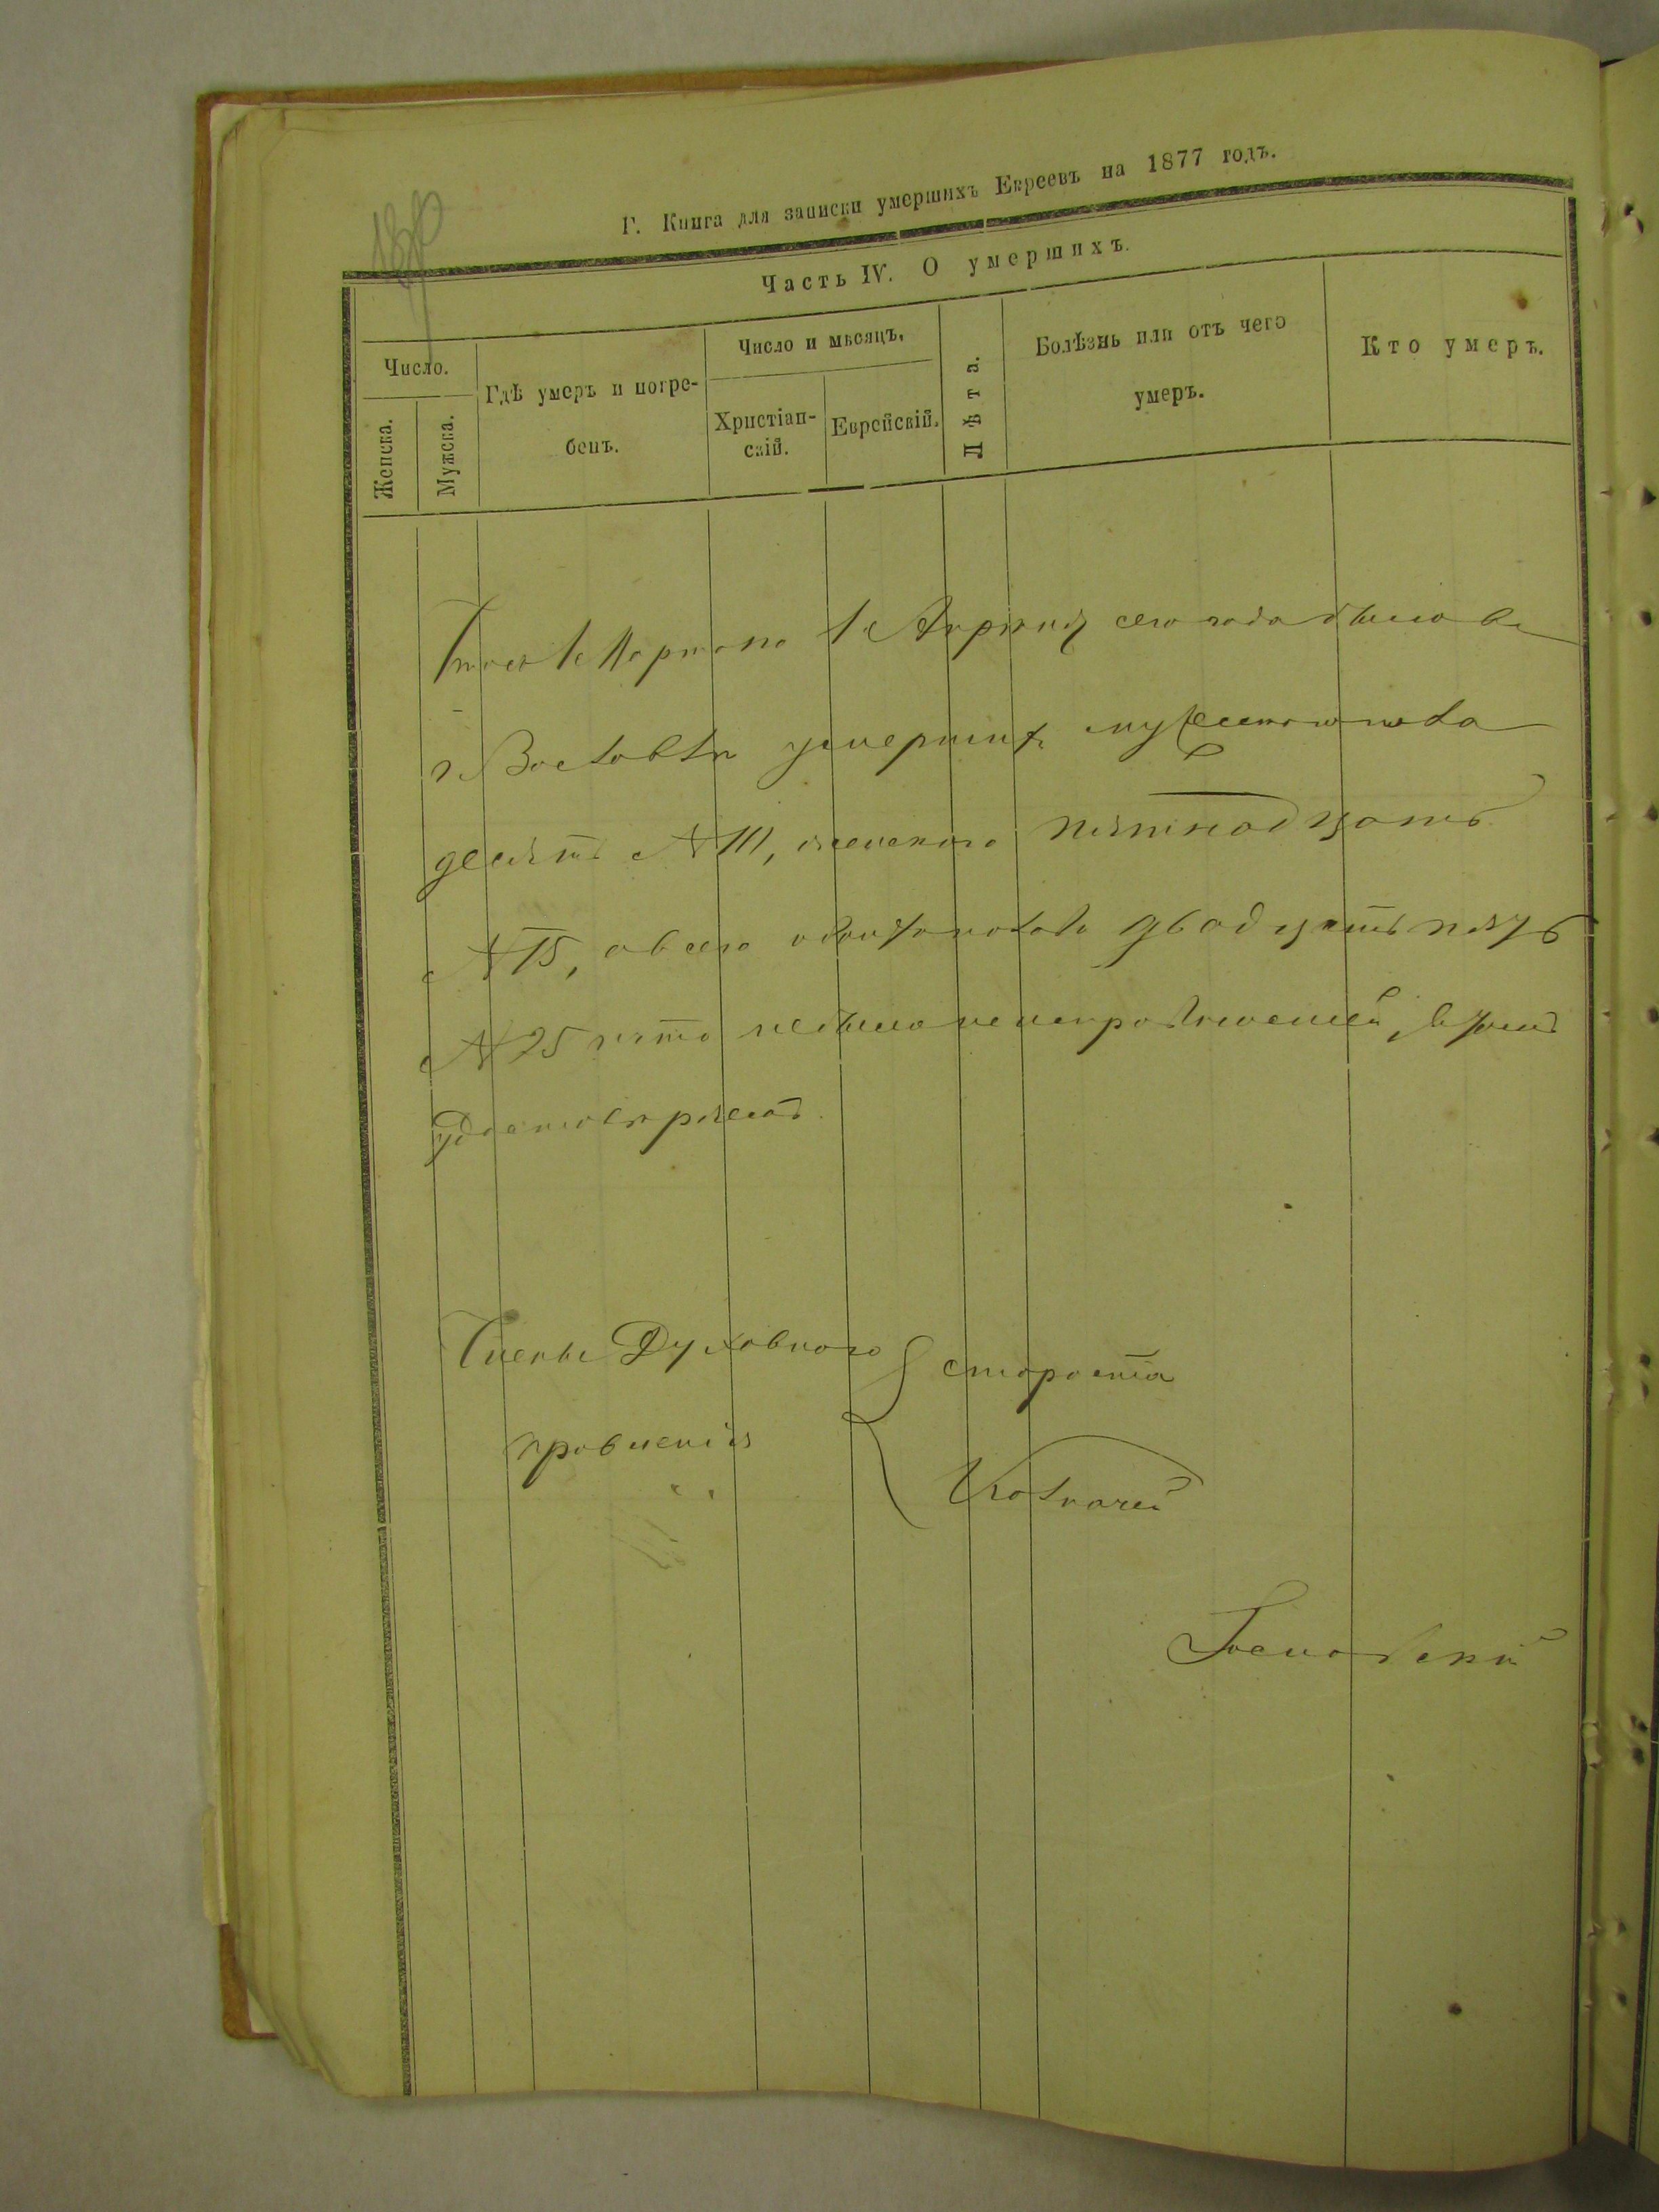 Г. Книга для записки умершихъ Евреевъ на 1877 годъ.
Часть IV. О умершихъ.
Число.
Женска.
Мужска.
Гдѣ умеръ и погре-
бенъ.
Число и мѣсяцъ.
Христіан-
скій.
Еврейскій.
Лѣта.
Болѣзнь или отъ чего
умеръ.
Кто умеръ.
Марта по 1е Апреля сего года было въ
г. умершихъ мужескаго пола
десять № 10, женскаго пятнадцать
№ 15, а всего обоего пола двадцать пять
№ 25 что не было въ томъ
удостовѣряемъ.
Члены Духовного
правленія
староста
Казначей